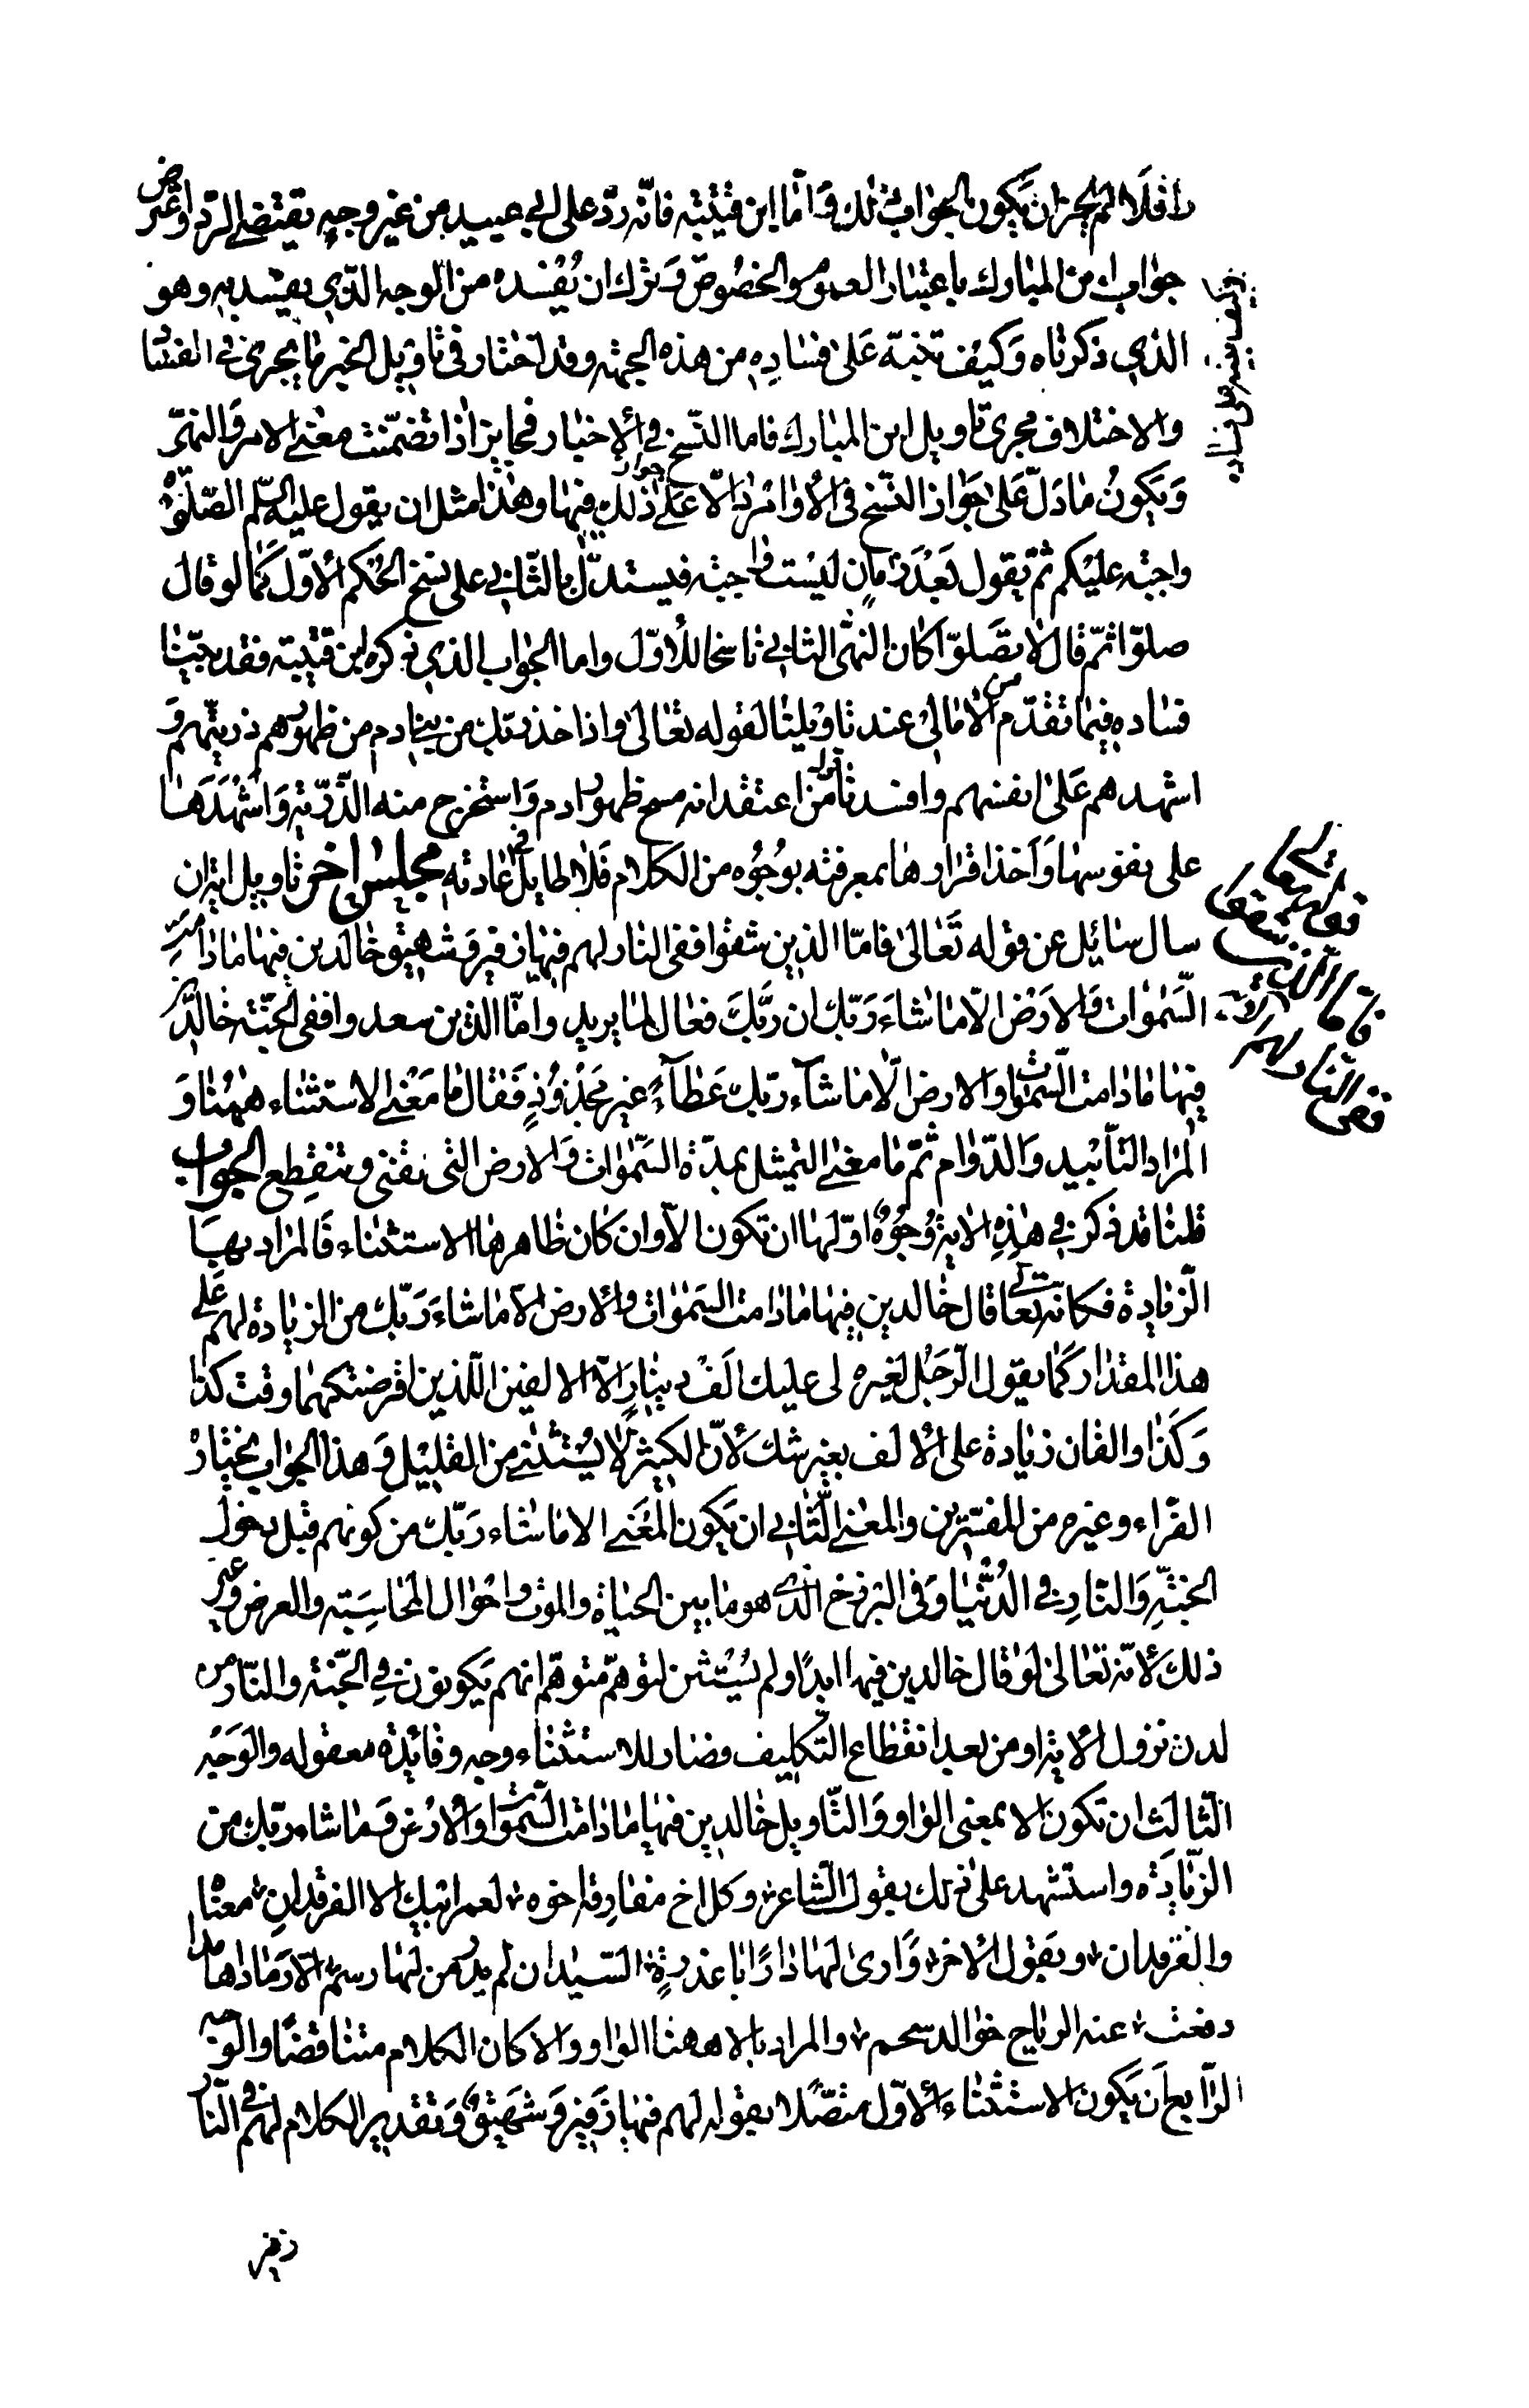 دافلا لم يجزان يكون الجواب ذلك وَامّا ابن قتيبة فانّه ردّ على ابي عبيد من غير وجه يقتضي الردّ واعترض
جواب ابن المبارك باعتبار العموم والخصوص وَ ترك ان يُفْسده من الوجه الذي يفسد به وهو
الذي ذكرناه وَكيف تنبه عَلى فساده من هذه الجهة وقد اختار في تاويل الخبر ما يجري في الفساد
والاختلاف مجرى تاويل ابن المبارك فاما النسخ في الاخبار فجايز اذا تضمّنت معنى الامر وَالنهى
وَيكونُ مادَلّ عَلى جَواز النّسخ في الاوامر دالّا عَلى جواز ذلك فيها وهذا مثل ان يقول عليه السّلم الصّلوة
واجبة عليكم ثمّ يقول بَعْدَ زمانٍ ليست واجبة فيستدلّ بالثّاني على نسخ الحُكم الاوّل كَما لو قال
صلّوا ثمّ قال لا تصَلّوا كان النهى الثاني ناسخا للاوّل واما الجواب الذي ذكره ابن قتيبة فقد بيّنّا
فساده فيما تقدّم من الامالي عند تاويلنا لقوله تعالى واذ اخذ ربّك من بني ادم من ظهورهم ذريتهم وَ
اشهدهم عَلى انفسهم وافسدنا قول من اعتقد انه مسح ظهر ادم وَاستخرج منه الذّرّية وَاشْهَدَهَا
على نفوسها وَاَخذ اقرارها بمعرفته بوُجُوه من الكلام فَلا طايل في اعادته مجلس اخر تاويل اية ان
سال سائل عن قوله تَعالى فامّا الذين شقوا ففى النار لهم فيها زفير وَشهيق خالدين فيها ما دامت
السّموات وَالارْض الّا ما شاءَ رَبّك ان ربَّكَ فعال لما يريد وامّا الذين سعدوا ففى الجنّة خالدين
فيها ما دامت السّموات والارض الّا ما شآء ربّك عَطآءً غير مَجْذوُذٍ فَقال ما مَعْنى الاستثناء ههُنا وَ
المراد التّأبيد وَالدّوام ثمّ ما معنى التمثيل بمدّة السّموات وَالارض التى تفنى و تنقطع الجواب
قلنا قد ذكر في هذِه الاية وُجُوهٌ اوّلها ان تكون الّا وان كان ظاهرها الاستثناء فَالمراد بها
الزيادة فكانه تعالى قال خالدين فيها ما دامت السَموات والارض الّا ما شاءَ رَبّك من الزيادة لهم عَلى
هذا المقدار كَما يقول الرّجُل لغيره لى عليك الَفْ دينارٍ الّا الالفين اللّذين اقرضتكهما وقت كذا
وَكَذا والفان زيادة على الالف بغير شك لانّ الكثير لا يُستثنى من القليل وَ هذا الجواب يختاره
الفرّاء وغيره من المفسّرين والمعنى الثّاني ان يكون المَعْنى الا ما شاء رَبّك من كونهم قبل دخول
الجنّةِ وَالنّارِ في الدُّنيا وَفى البرزخ الذى هو ما بين الحياة والموت واحوال المحاسَبة والعرض وغير
ذلك لانّه تعَالى لَو قال خالدين فيها ابدًا ولم يُستثن لتوهّم متوهّم انهم يَكونون في الجّنة والنّار من
لدن نزول الاية او من بعد انقطاع التّكليف فصار للاستثناء وجه وفائدة معقوله والوَجْه
الثّالث ان تكون الا بمعنى الواو وَالتّاويل خالدين فيها ما دامَت السّموات وَالارْض وَما شاء ربّك من
الزّيادة واستشهد على ذلك بقول الشّاعر وكل اخ مفارقه اخوه لعمر ابيك الا الفرقدانِ معناه
والفرقدان وبقول الاخر وَارى لَها دارًا باغدرةِ السّيدان لم يدرُس لها رسم الّا رَمادًا هامدًا
دفعت عنه الرياح خوالد سحم والمراد بالا ههنا الواو والا كان الكلام متناقضًا والوجه
الرّابع ان يكون الاستثناء الاوّل متّصلًا بقوله لهم فيها زَفير وَ شهيقٌ وَ تقدير الكلام لهم في النّار
زفير